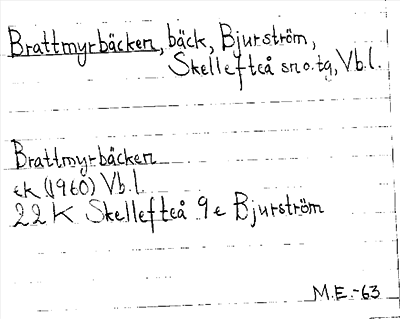 Brattmyrbäcken, bäck, Bjurström,
Skellefteå sn o. tg, Vb.l.
Brattmyrbäcken
ek (1960) Vb.l.
22 K Skellefteå 9 e Bjurström
M.E.-63